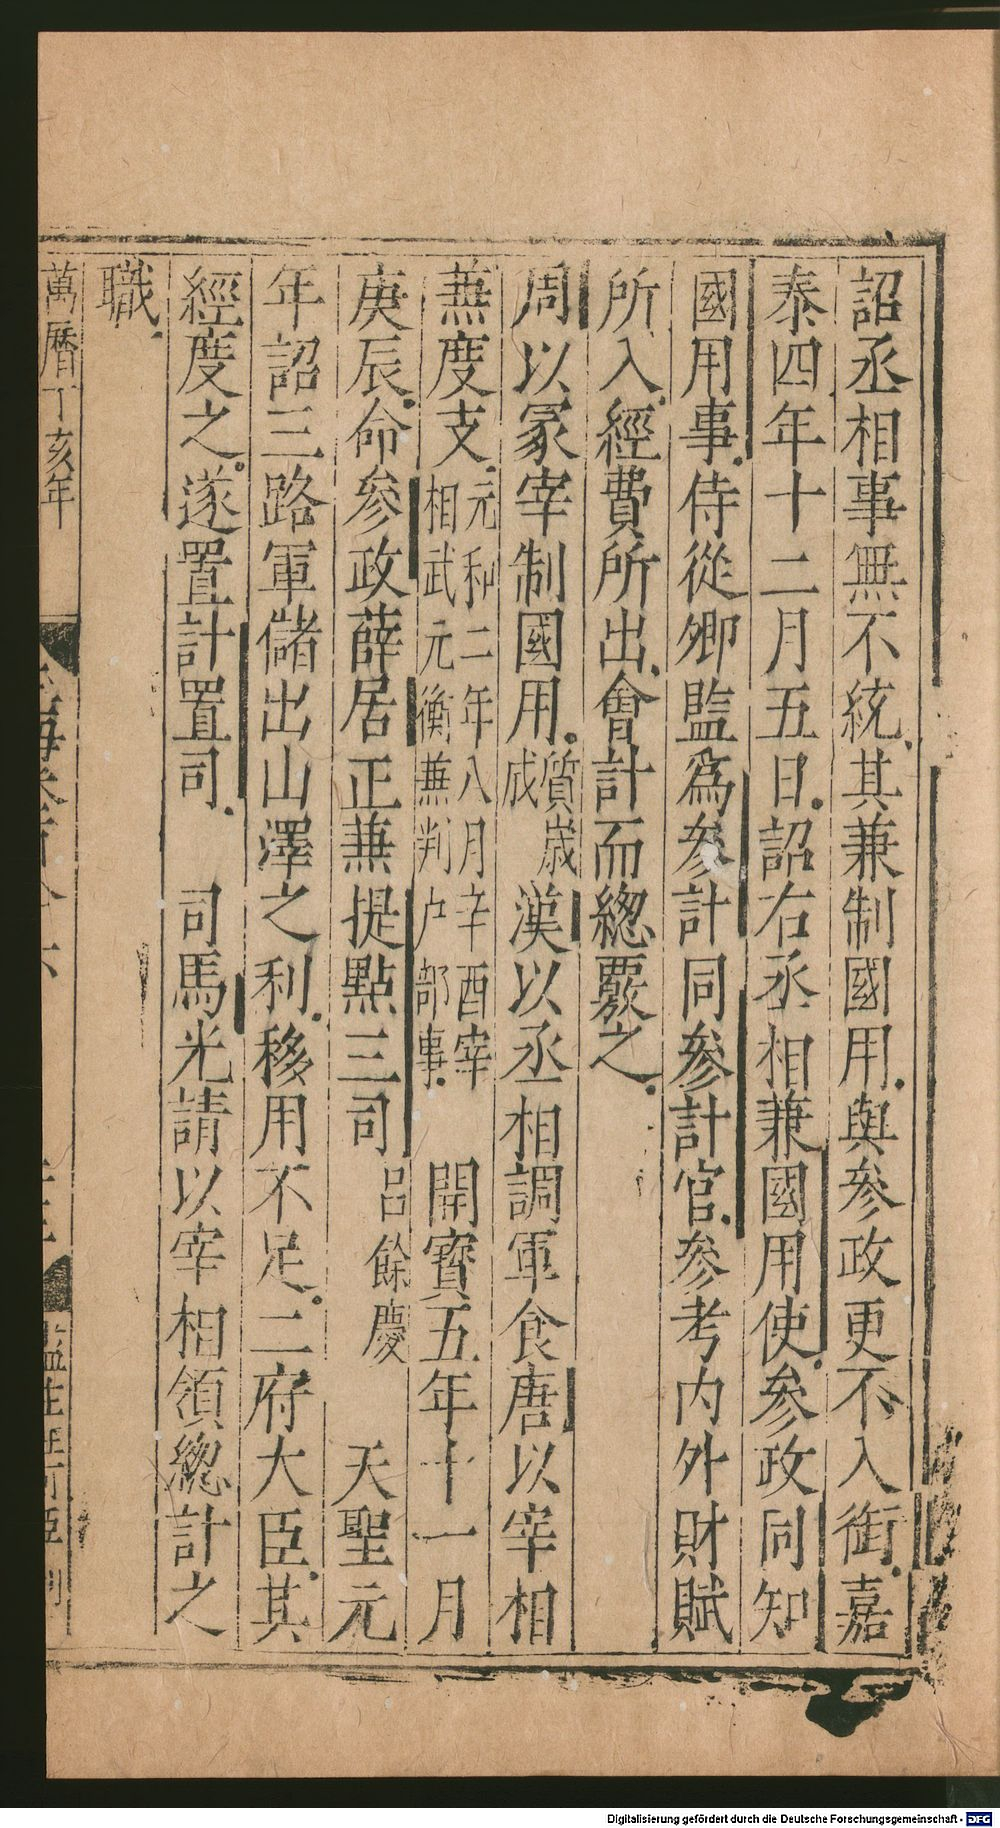 詔丞相事無不統其兼制國用與參政更不入銜嘉
泰四年十二月五日詔右丞相兼國用使參政同知
國用事侍從卿監爲參計同參計官參考內外財賦
所入經費所出會計而總覈之
周以冢宰制國用質歲成 漢以丞相調軍食唐以宰相
兼度支元和二年八月辛酉宰相武元衡兼判戶部事 開寶五年十一月
庚辰命參政薛居正兼提點三司呂餘慶 天聖元
年詔三路軍儲出山澤之利移用不足二府大臣其
經度之遂置計置司 司馬光請以宰相領總計之
職
萬曆丁亥年
Digitalisierung gefördert durch die Deutsche Forschungsgemeinschaft - DFG